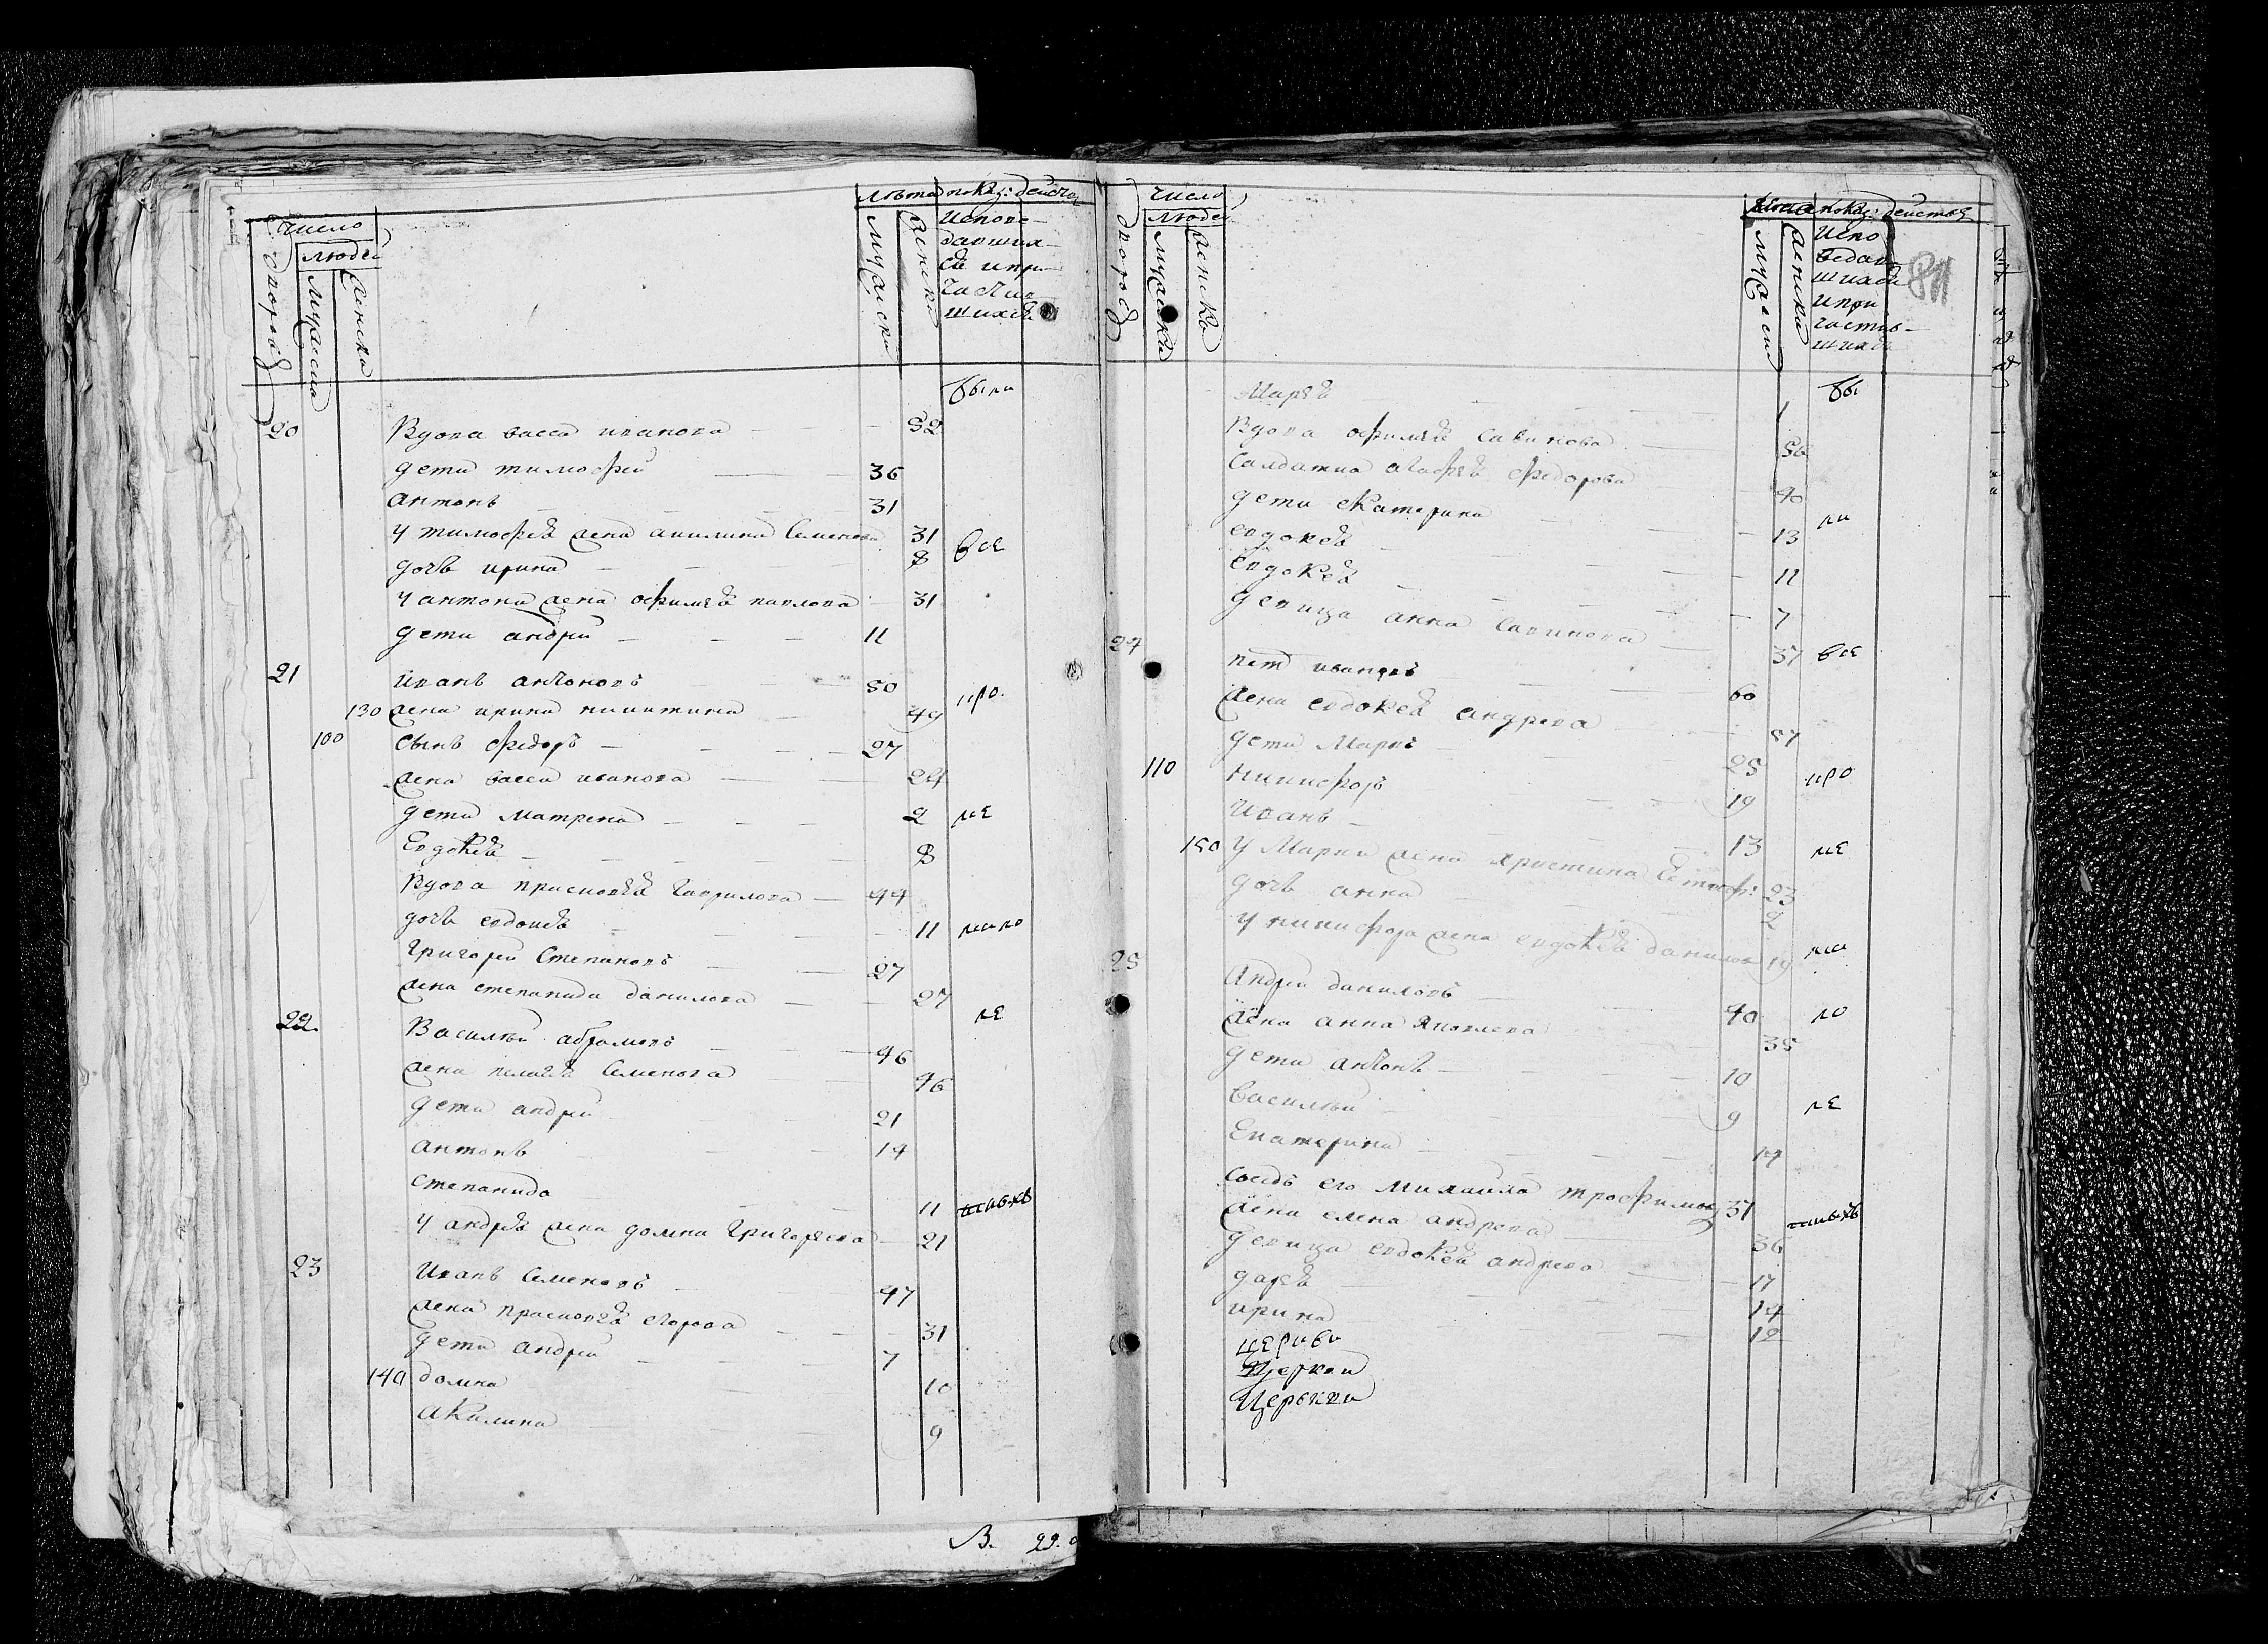 число
людей
дворовъ
мужеска
женска
лѣта
показ: действа
мужески
женски
Испове-
давших-
ся и при-
частив-
шихся
были
20 Вдова васса иванова 52
дети тимофей 36
антонъ 31
у тимофея жена акилина Семенова 31
все
дочь ирина 8
у антона жена офимья павлова 31
дети андрей 11
21 Иванъ антоновъ 50
испо.
130 жена ирина никитина 49
100 сынъ федоръ 27
жена васса иванова 24
дети матрена 2
Евдокея 8
Вдова прасковья гаврилова 44
дочь евдокея 11
Григорей Степановъ 27
жена степанида данилова 27
22 Василей абрамовъ 46
жена пелагея Семенова 46
дети андрей 21
антонъ 14
степанида 11
у андрея жена домна Григорьева 21
23 Иванъ Семеновъ 47
жена прасковья егорова 31
дети андрей 7
140 домна 10
акилина 9
В. 29.
число
людей
дворовъ
мужески
женска
показ: действа
мужески
женски
Испо
ведав-
шихся
и при
частив-
шихся
81
бы
Марья 1
Вдова офимья Савинова 56
Салдатка агафья федорова 40
дети екатерина 13
ли
евдокея 11
евдокея 7
девица анна Савинова 37
все
24 петръ ивановъ 60
жена евдокея андреева 57
дети Марко 25
110 никифоръ 19
Иванъ 13
150 у Марка жена христина 23
дочь анна 2
у никифора жена евдокея данилова 19
25 Андрей даниловъ 40
жена анна яковлева 35
дети антонъ 10
василей 9
Екатерина 14
соседъ его михайла трофимовъ 37
жена елена андреева 36
девица евдокея андреева 17
дарья 14
ирина 12
церкви
Церкви
Церькви